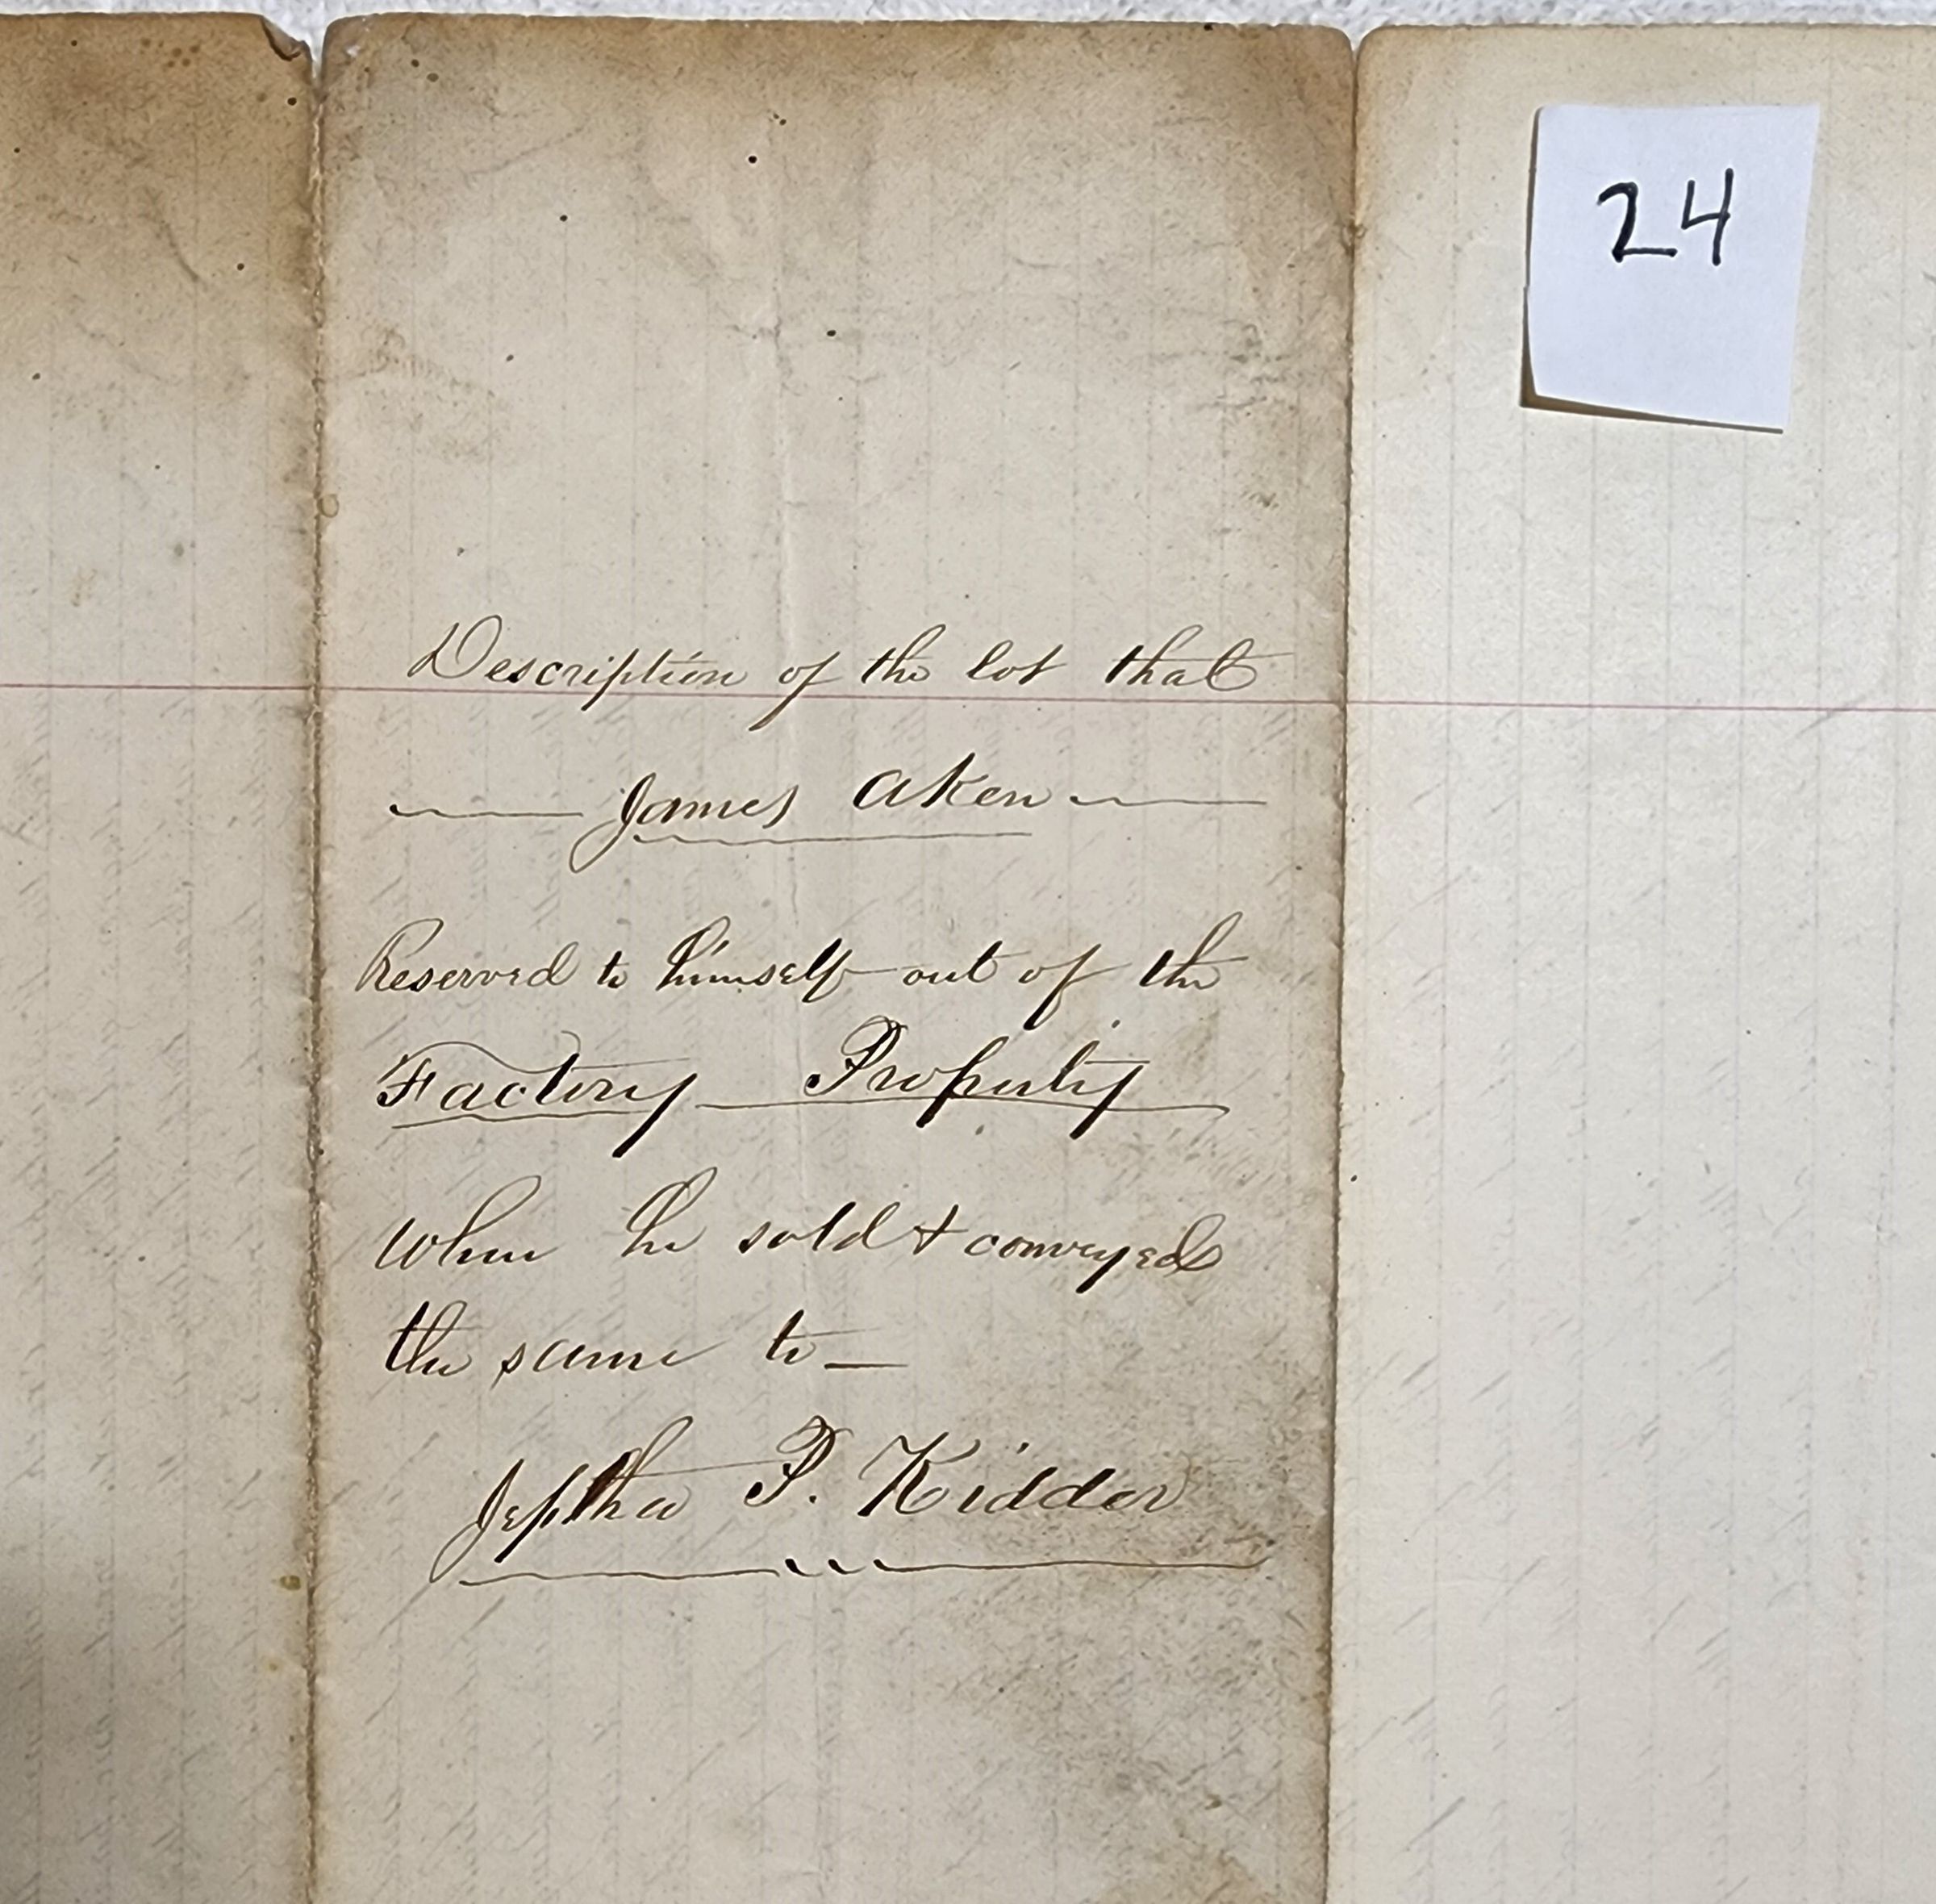 24
Description of the lot that
James Aken
Reserved to himself out of the
Factory Property
when he sold & conveyed
the same to —
Jeptha P. Kidder